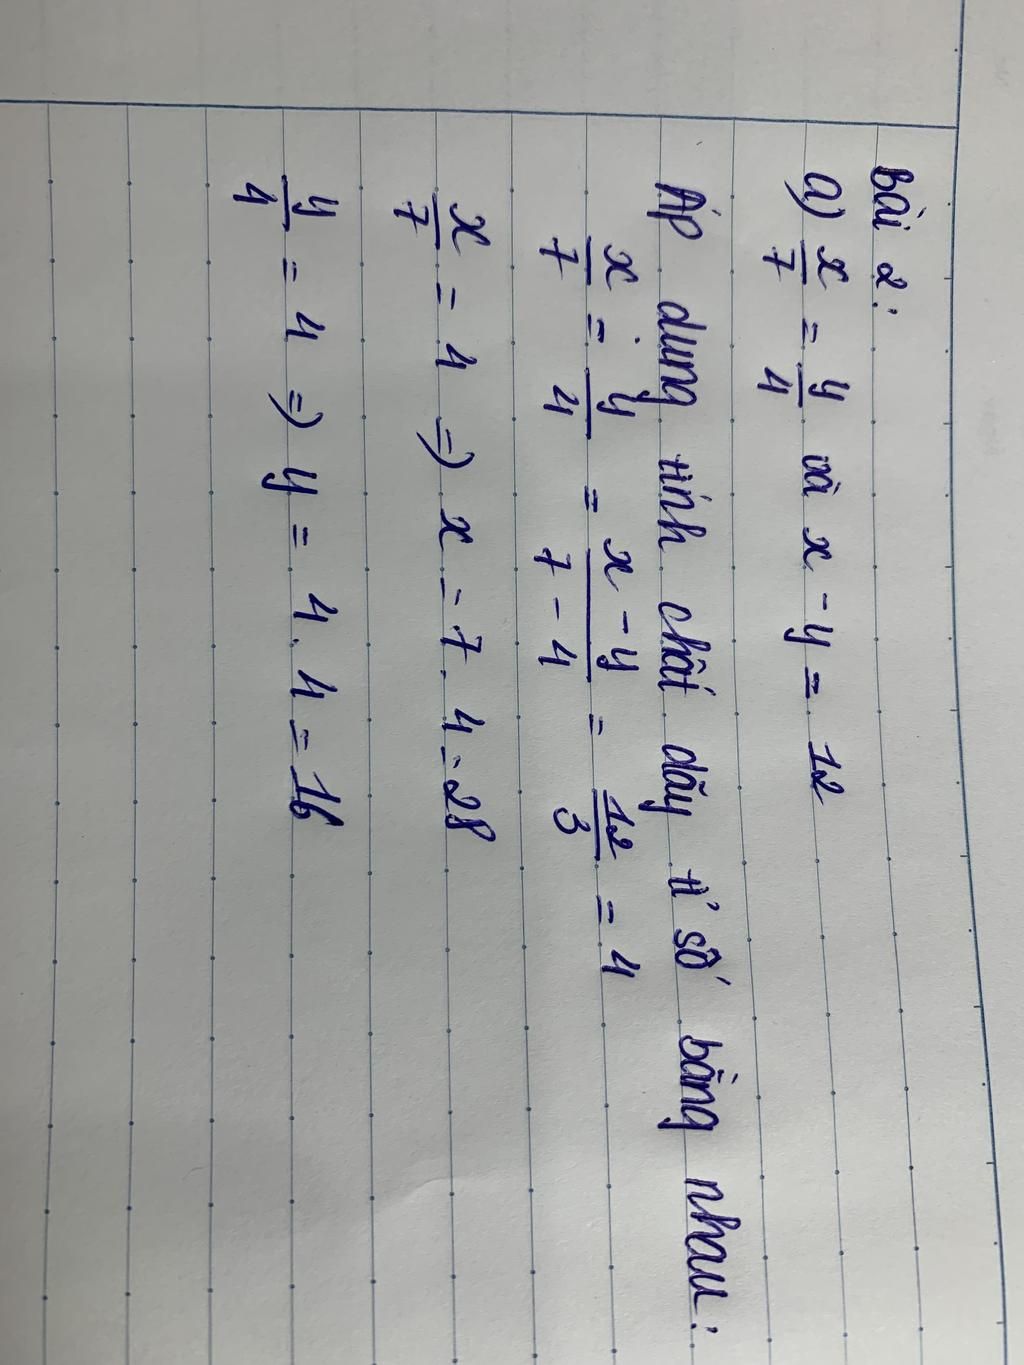 Bài 2:
a) x/7 = y/4 và x - y = 12
Áp dụng tính chất dãy tỉ số bằng nhau:
x/7 = y/4 = (x - y)/(7 - 4) = 12/3 = 4
x/7 = 4 => x = 7 . 4 = 28
y/4 = 4 => y = 4 . 4 = 16